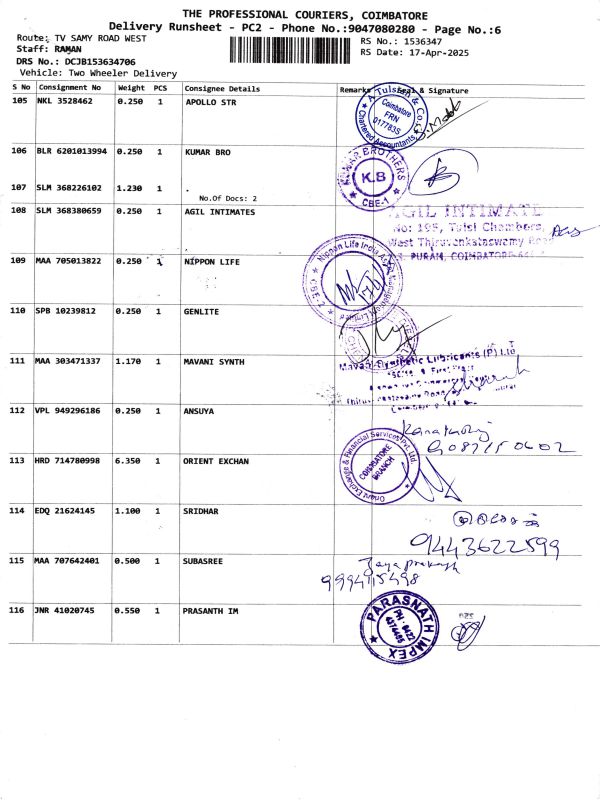 THE PROFESSIONAL COURIERS, COIMBATORE
Delivery Runsheet - PC2 - Phone No.:9047080280 - Page No.:6
Route: TV SAMY ROAD WEST
RS No.: 1536347
Staff: RAMAN
RS Date: 17-Apr-2025
DRS No.: DCJB153634706
Vehicle: Two Wheeler Delivery
S No Consignment No Weight PCS Consignee Details Remarks Seal & Signature
105 NKL 3528462 0.250 1 APOLLO STR
A. Tulssi & Co.
Coimbatore
FRN
017783S
Chartered Accountants
106 BLR 6201013994 0.250 1 KUMAR BRO
KUMAR BROTHERS
K.B
CBE-1
107 SLM 368226102 1.230 1 .
No.Of Docs: 2
108 SLM 368380659 0.250 1 AGIL INTIMATES
AGIL INTIMATE
No: 195, Tulsi Chambers,
West Thiruvenkataswamy Road
PURAM, COIMBATORE
109 MAA 705013822 0.250 1 NIPPON LIFE
Nippon Life India Asset Management Limited
CBE-2
110 SPB 10239812 0.250 1 GENLITE
111 MAA 303471337 1.170 1 MAVANI SYNTH
Mavani Synthetic Lubricants (P) Ltd
112 VPL 949296186 0.250 1 ANSUYA
113 HRD 714780998 6.350 1 ORIENT EXCHAN
Orient Exchange & Financial Services Pvt. Ltd.
COIMBATORE
BRANCH
114 EDQ 21624145 1.100 1 SRIDHAR
9443622599
115 MAA 707642401 0.500 1 SUBASREE
Jaya prakash
116 JNR 41020745 0.550 1 PRASANTH IM
PARASNATH IMPEX
PH : 0422
4374485